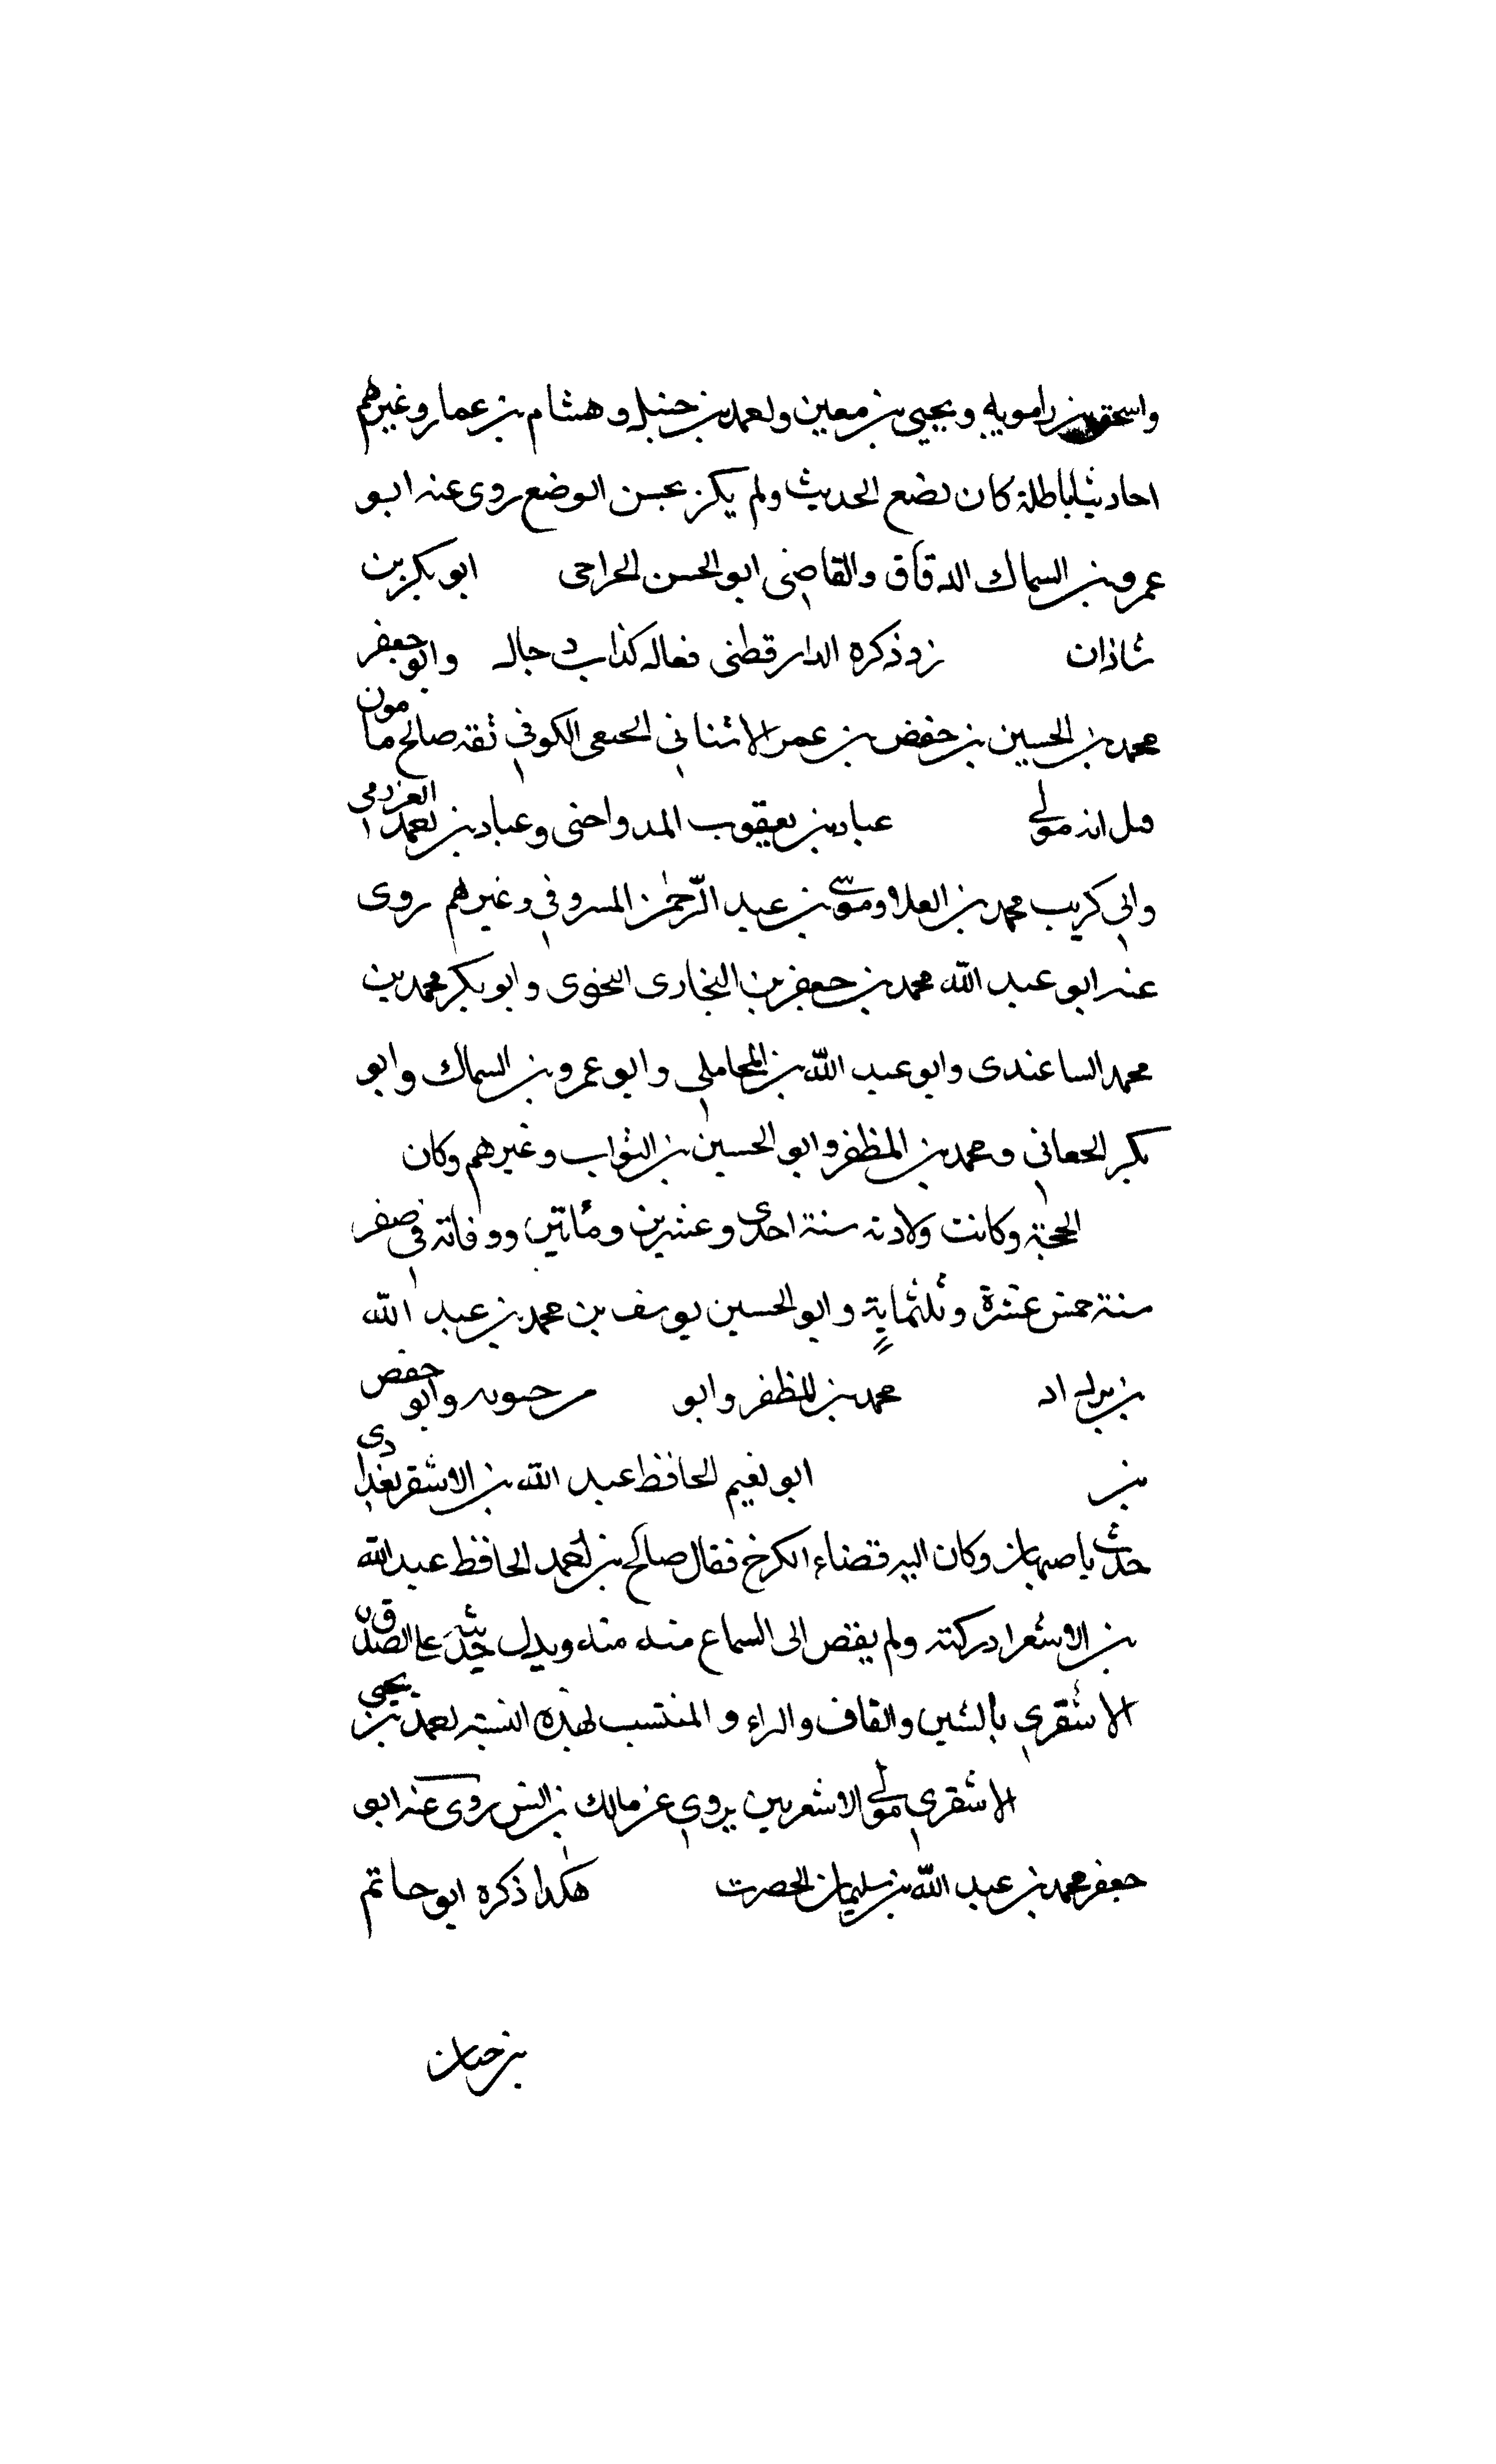 واسحق بن راهويه ويحيى بن معين واحمد بن حنبل وهشام بن عمار وغيرهم
احاديثا باطلة كان يضع الحديث ولم يكن يحسن الوضع روى عنه ابو
عمرو بن السماك الدقاق والقاضي ابو الحسن الجراحي ابو بكر بن
شاذان وذكره الدارقطني فقال كذاب دجال وابو جعفر
محمد بن الحسين بن حفص بن عمر الاشناني الخثعمي الكوفي ثقة صالح مامون
قيل انه مولى عباد بن يعقوب وعباد بن احمد العرزمي
وابي كريب محمد بن العلا وموسى بن عبد الرحمن المسروقي وغيرهم روى
عنه ابو عبد الله محمد بن جعفر بن النجاري النحوى وابو بكر محمد بن
محمد الساغندى وابو عبد الله بن المحاملي وابو عمرو بن السماك وابو
بكر الجعاني ومحمد بن المظفر وابو الحسين بن البواب وغيرهم وكان
الحجة وكانت ولادته سنة احدى وعشرين ومأتين ووفاته في صفر
سنة خمس عشرة وثلثماية وابو الحسين يوسف بن محمد بن عبد الله
بن محمد بن المظفر وابو وابو حفص
بن ابو نعيم الحافظ عبد الله بن الاشقر بغدادى
حدث باصبهان وكان اليه قضاء الكرخ فقال صالح بن احمد الحافظ عبد الله
بن الاشقر ادركته ولم يقض الى السماع منه منه ويدل حديثه على الصدق
الاشقري بالشين والقاف والراء و المنتسب لهذه النسبة احمد بن يحيى
الاشقري مولى الاشعريين يروي عن مالك بن انس روى عنه ابو
جعفر محمد بن عبد الله بن سليمان الحضرت هكذا ذكره ابو حاتم
بن حبان